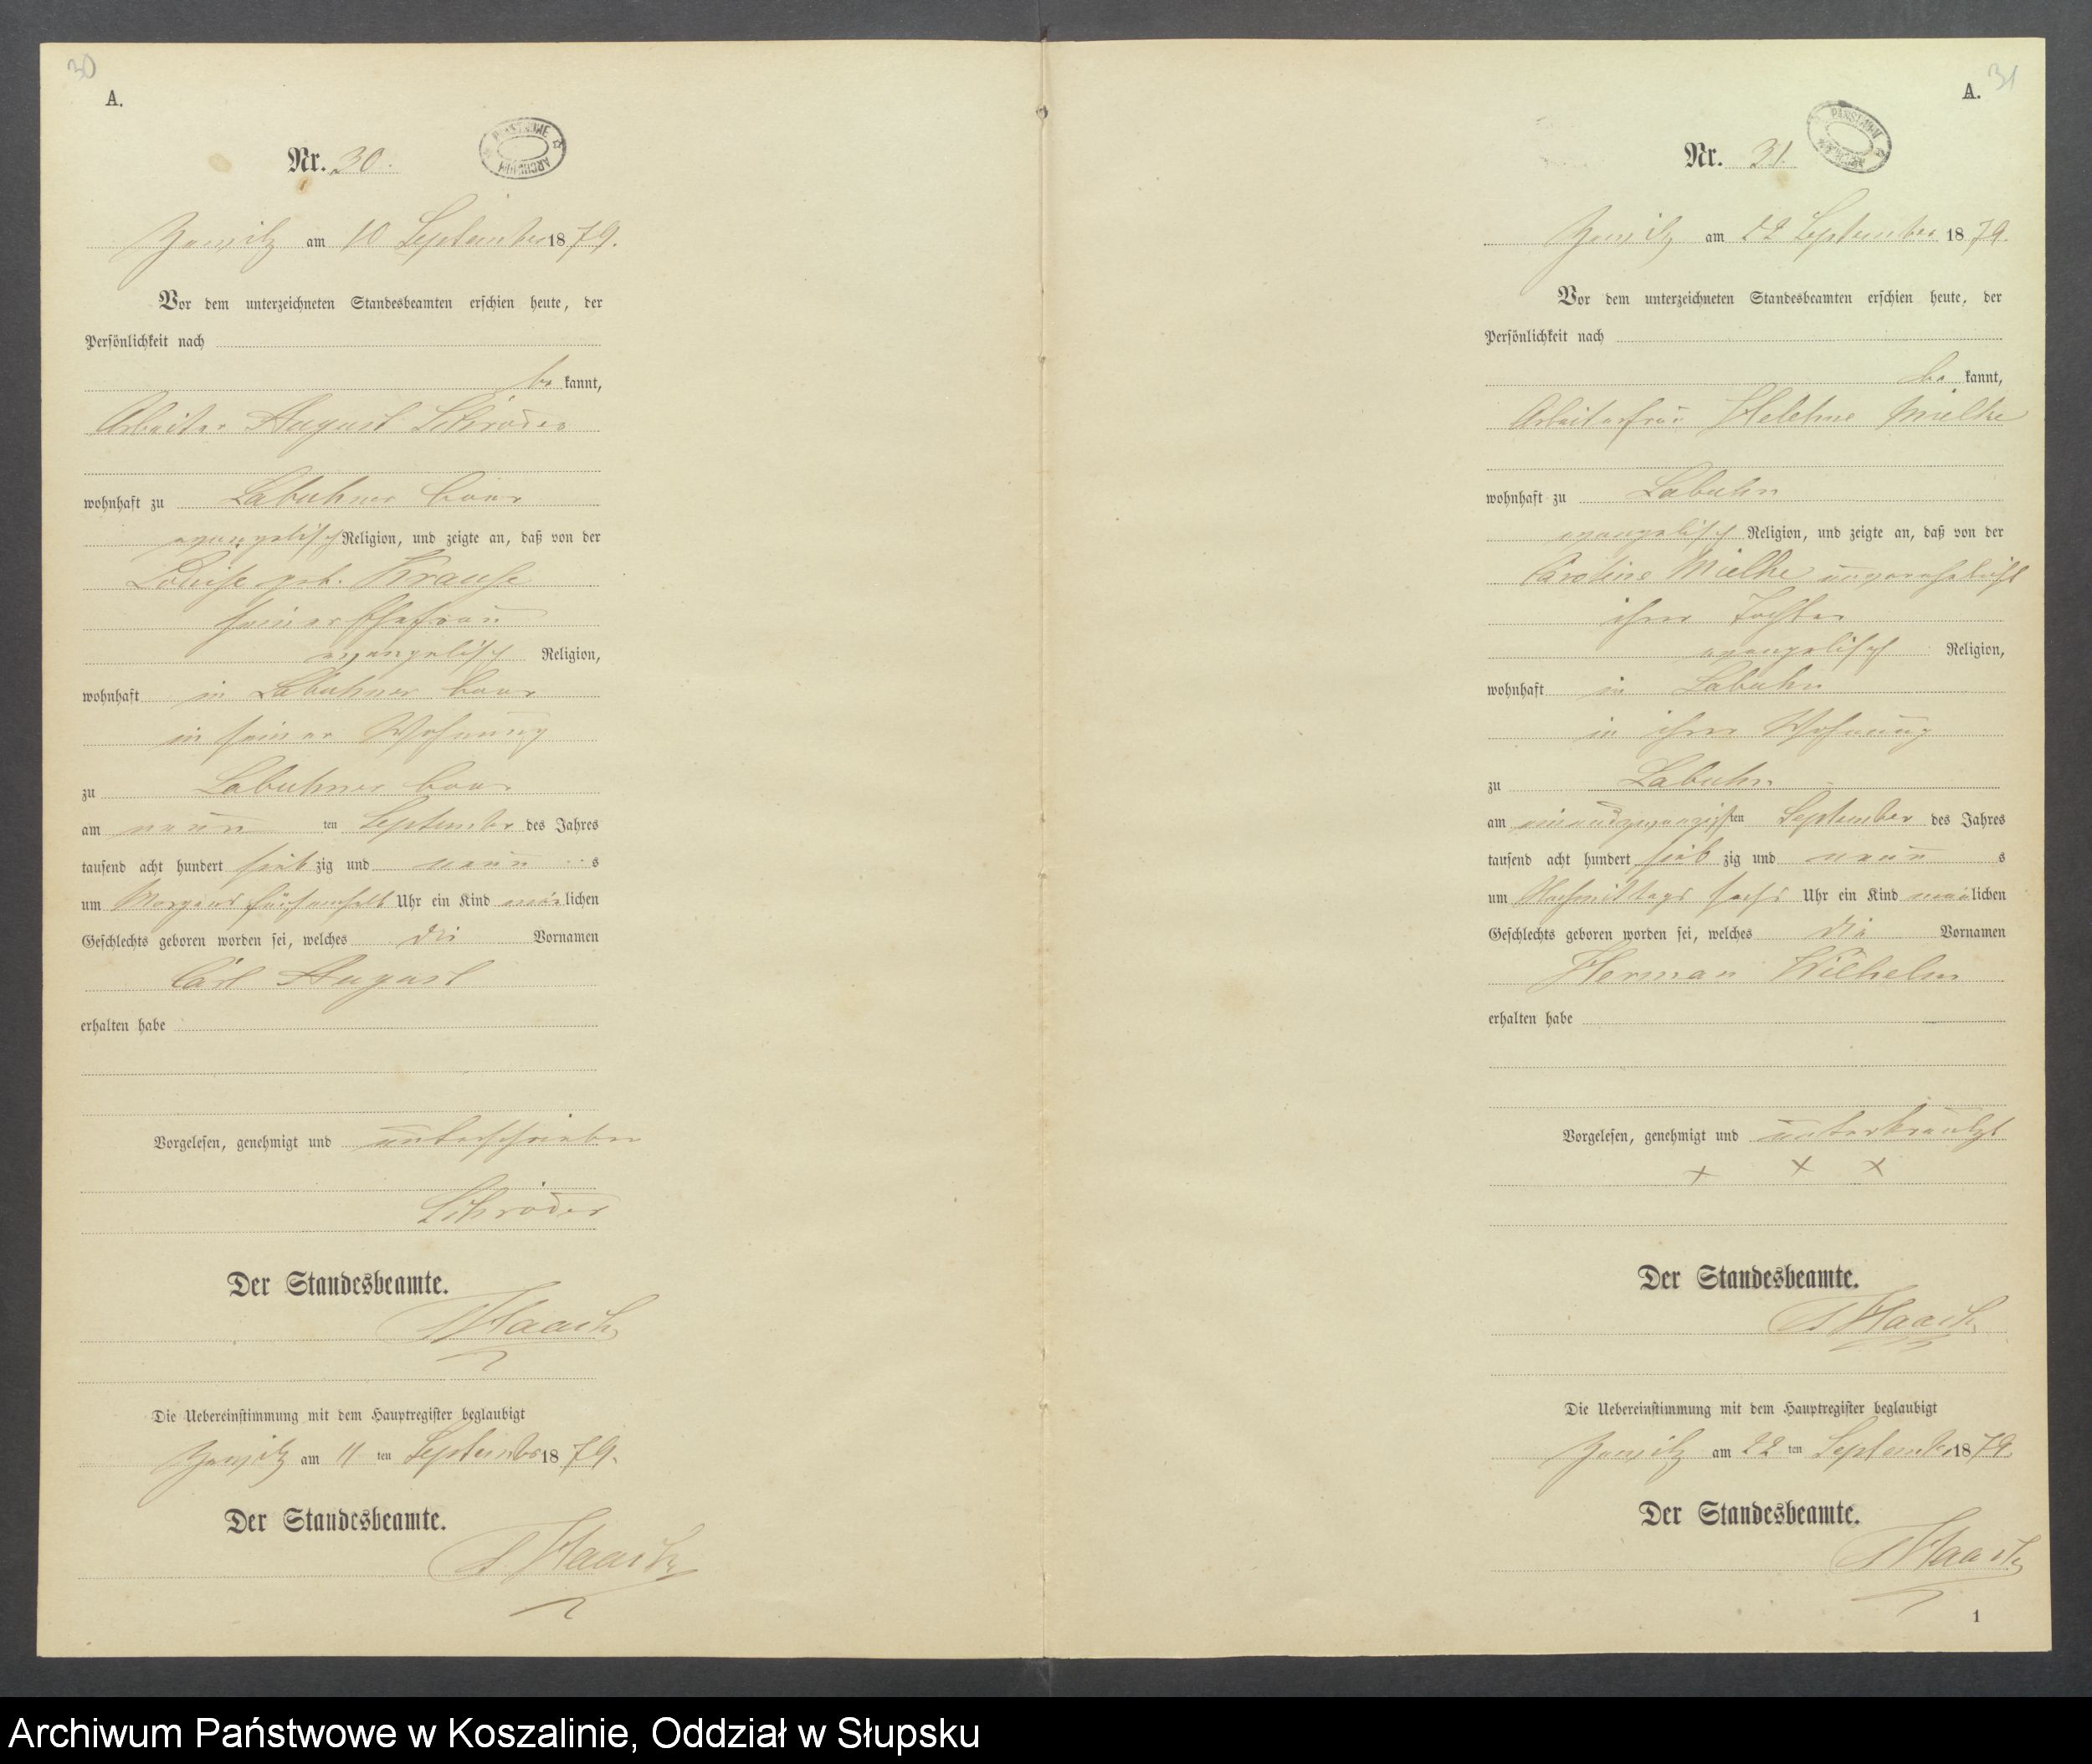 30
A.
Nr. 30.
PAŃSTWOWE ARCHIWUM
am 10 September 1879.
Vor dem unterzeichneten Standesbeamten erschien heute, der
Persönlichkeit nach
be kannt,
Arbeiter August Schröder
wohnhaft zu Labuhner
evangelisch Religion, und zeigte an, daß von der
Louise geb. Krause
seiner Ehefrau
evangelisch Religion,
wohnhaft in Labuhner
in seiner Wohnung
zu Labuhner
am neun ten September des Jahres
tausend acht hundert sieb zig und neun s
um Morgens Uhr ein Kind män lichen
Geschlechts geboren worden sei, welches die Vornamen
Carl August
erhalten habe
Vorgelesen, genehmigt und unterschrieben
Schröder
Der Standesbeamte.
Haack
Die Uebereinstimmung mit dem Hauptregister beglaubigt
am 11 ten September 1879.
Der Standesbeamte.
Haack
31
A.
Nr. 31.
PAŃSTWOWE ARCHIWUM
am 22 September 1879.
Vor dem unterzeichneten Standesbeamten erschien heute, der
Persönlichkeit nach
be kannt,
Arbeiterfrau Mielke
wohnhaft zu Labuhn
evangelisch Religion, und zeigte an, daß von der
Caroline Mielke unverehelicht
ihrer Tochter
evangelisch Religion,
wohnhaft in Labuhn
in ihrer Wohnung
zu Labuhn
am einundzwanzigsten September des Jahres
tausend acht hundert sieb zig und neun s
um Nachmittags sechs Uhr ein Kind män lichen
Geschlechts geboren worden sei, welches die Vornamen
Herman Wilhelm
erhalten habe
Vorgelesen, genehmigt und unterkreutzt
x x x
Der Standesbeamte.
Haack
Die Uebereinstimmung mit dem Hauptregister beglaubigt
am 22 ten September 1879.
Der Standesbeamte.
Haack
1
Archiwum Państwowe w Koszalinie, Oddział w Słupsku